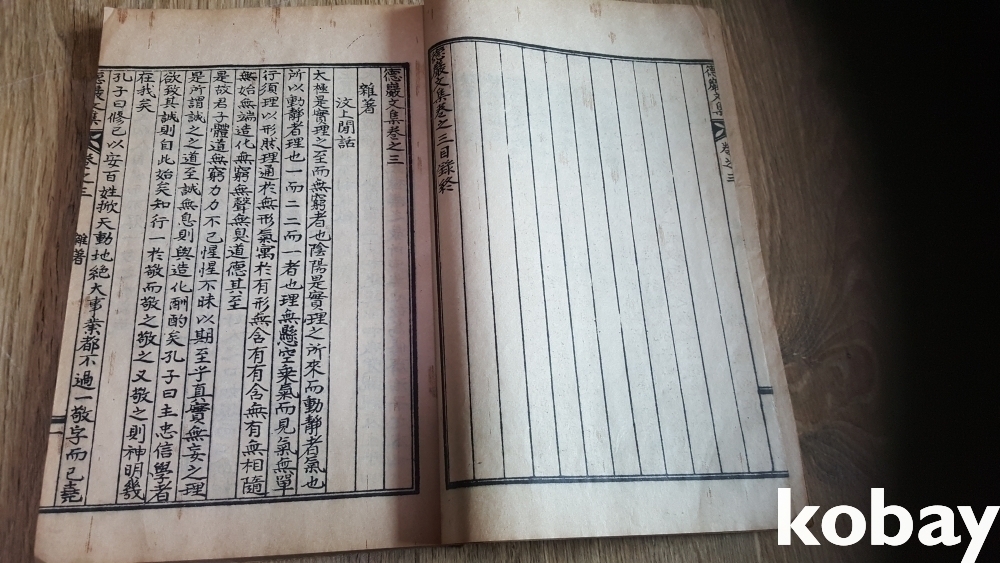 德巖文集 卷之三
德巖文集卷之三目錄終
德巖文集卷之三
雜著
汶上閒話
太極是實理之至而無窮者也陰陽是實理之所來而動靜者氣也
所以動靜者理也一而二二而一者也理無懸空乘氣而見氣無單
行須理以形然理通於無形氣寓於有形無含有有含無有無相隨
無始無端造化無窮無聲無臭道德其至
是故君子體道無窮力力不已惺惺不昧以期至乎眞實無妄之理
是所謂誠之之道至誠無息則與造化酬酌矣孔子曰主忠信學者
欲致其誠則自此始矣知行一於敬而敬之敬之又敬之則神明幾
在我矣
孔子曰修己以安百姓掀天動地絶大事業都不過一敬字而已堯
德巖文集 卷之三 雜著
kobay